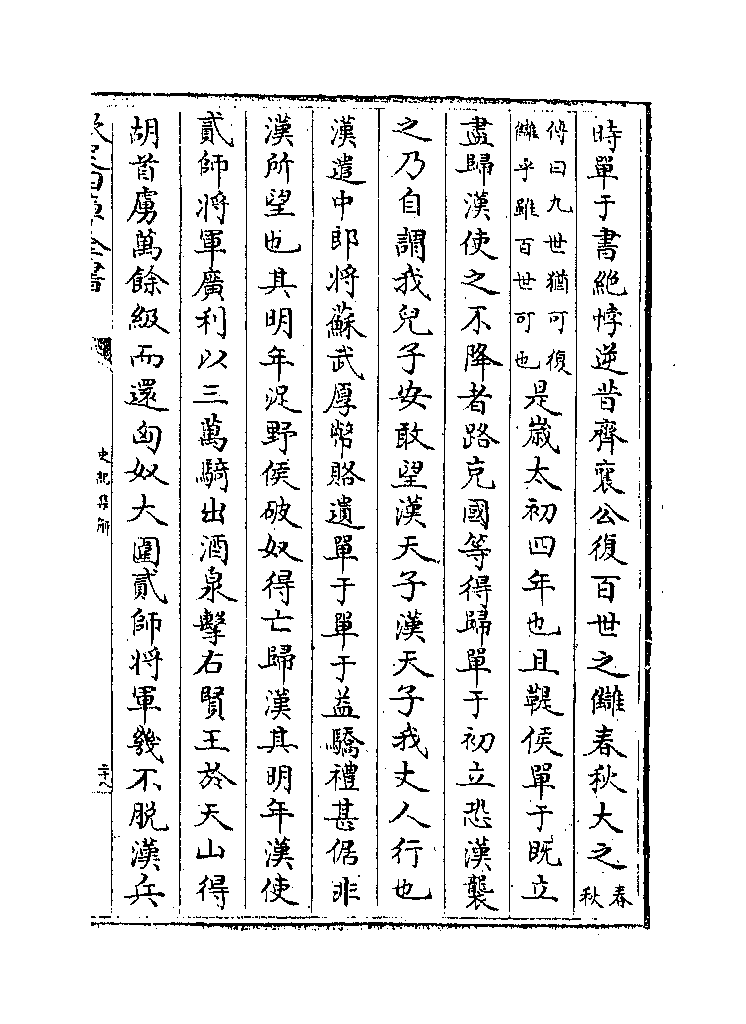 時單于書絶悖逆昔齊襄公復百世之讎春秋大之春秋
傳曰九世猶可復讎乎雖百世可也是歲太初四年也且鞮侯單于既立
盡歸漢使之不降者路充國等得歸單于初立恐漢襲
之乃自謂我兒子安敢望漢天子漢天子我丈人行也
漢遣中郎將蘇武厚幣賂遺單于單于益驕禮甚倨非
漢所望也其明年浞野侯破奴得亡歸漢其明年漢使
貳師將軍廣利以三萬騎出酒泉擊右賢王於天山得
胡首虜萬餘級而還匈奴大圍貳師將軍幾不脱漢兵
欽定四庫全書
史記集解